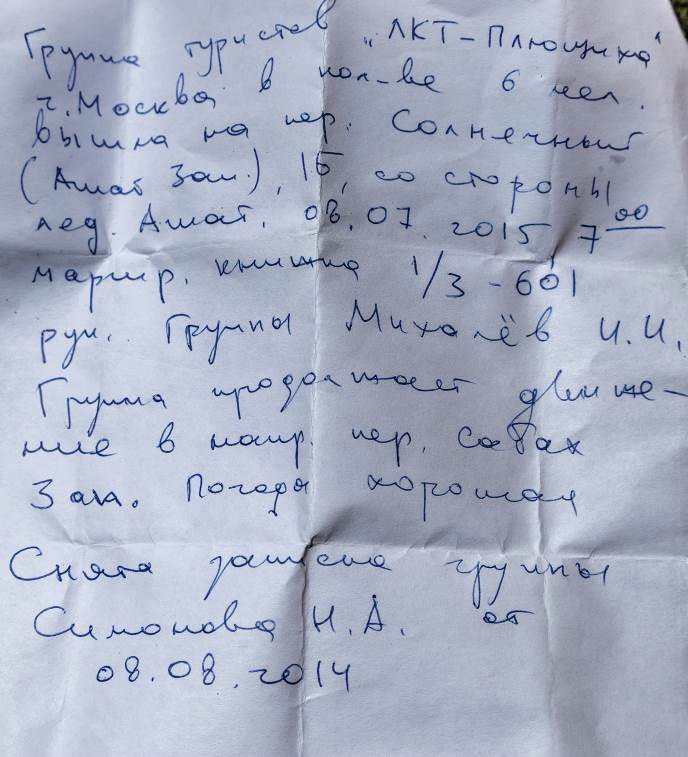 Группа туристов „ЛКТ-Плющиха“
г. Москва в кол-ве 6 чел.
вышла на пер. Солнечный
(Ашат Зап.), 1Б, со стороны
лед. Ашат. 08.07.2015 7 00
маршр. книжка 1/3-601
рук. Группы Михалёв И.И.
Группа продолжает движе-
ние в напр. пер. Сабах
Зап. Погода хорошая
Снята записка группы
Симонова Н.А. от
08.08.2014